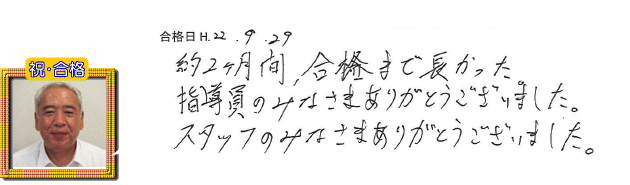 祝・合格
合格日 H.22.9.29
約2ヶ月間,合格まで長かった。
指導員のみなさまありがとうございました。
スタッフのみなさまありがとうございました。